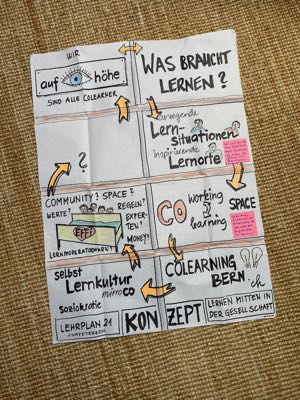 WIR
auf Augenhöhe
SIND ALLE COLEARNER
WAS BRAUCHT
LERNEN?
anregende
Lern-
situationen
inspirierende
Lernorte
?
COMMUNITY? SPACE?
WERTE?
REGELN?
EXPER-
TEN?
MONEY?
EFFI
LERNMODERATOR*INNEN?
CO
working
learning
SPACE
selbst
Lernkultur
mirroco
Soziokratie
COLEARNING
BERN.ch
LEHRPLAN 21
KOMPETENZEN
KON
ZEPT
LERNEN MITTEN IN
DER GESELLSCHAFT